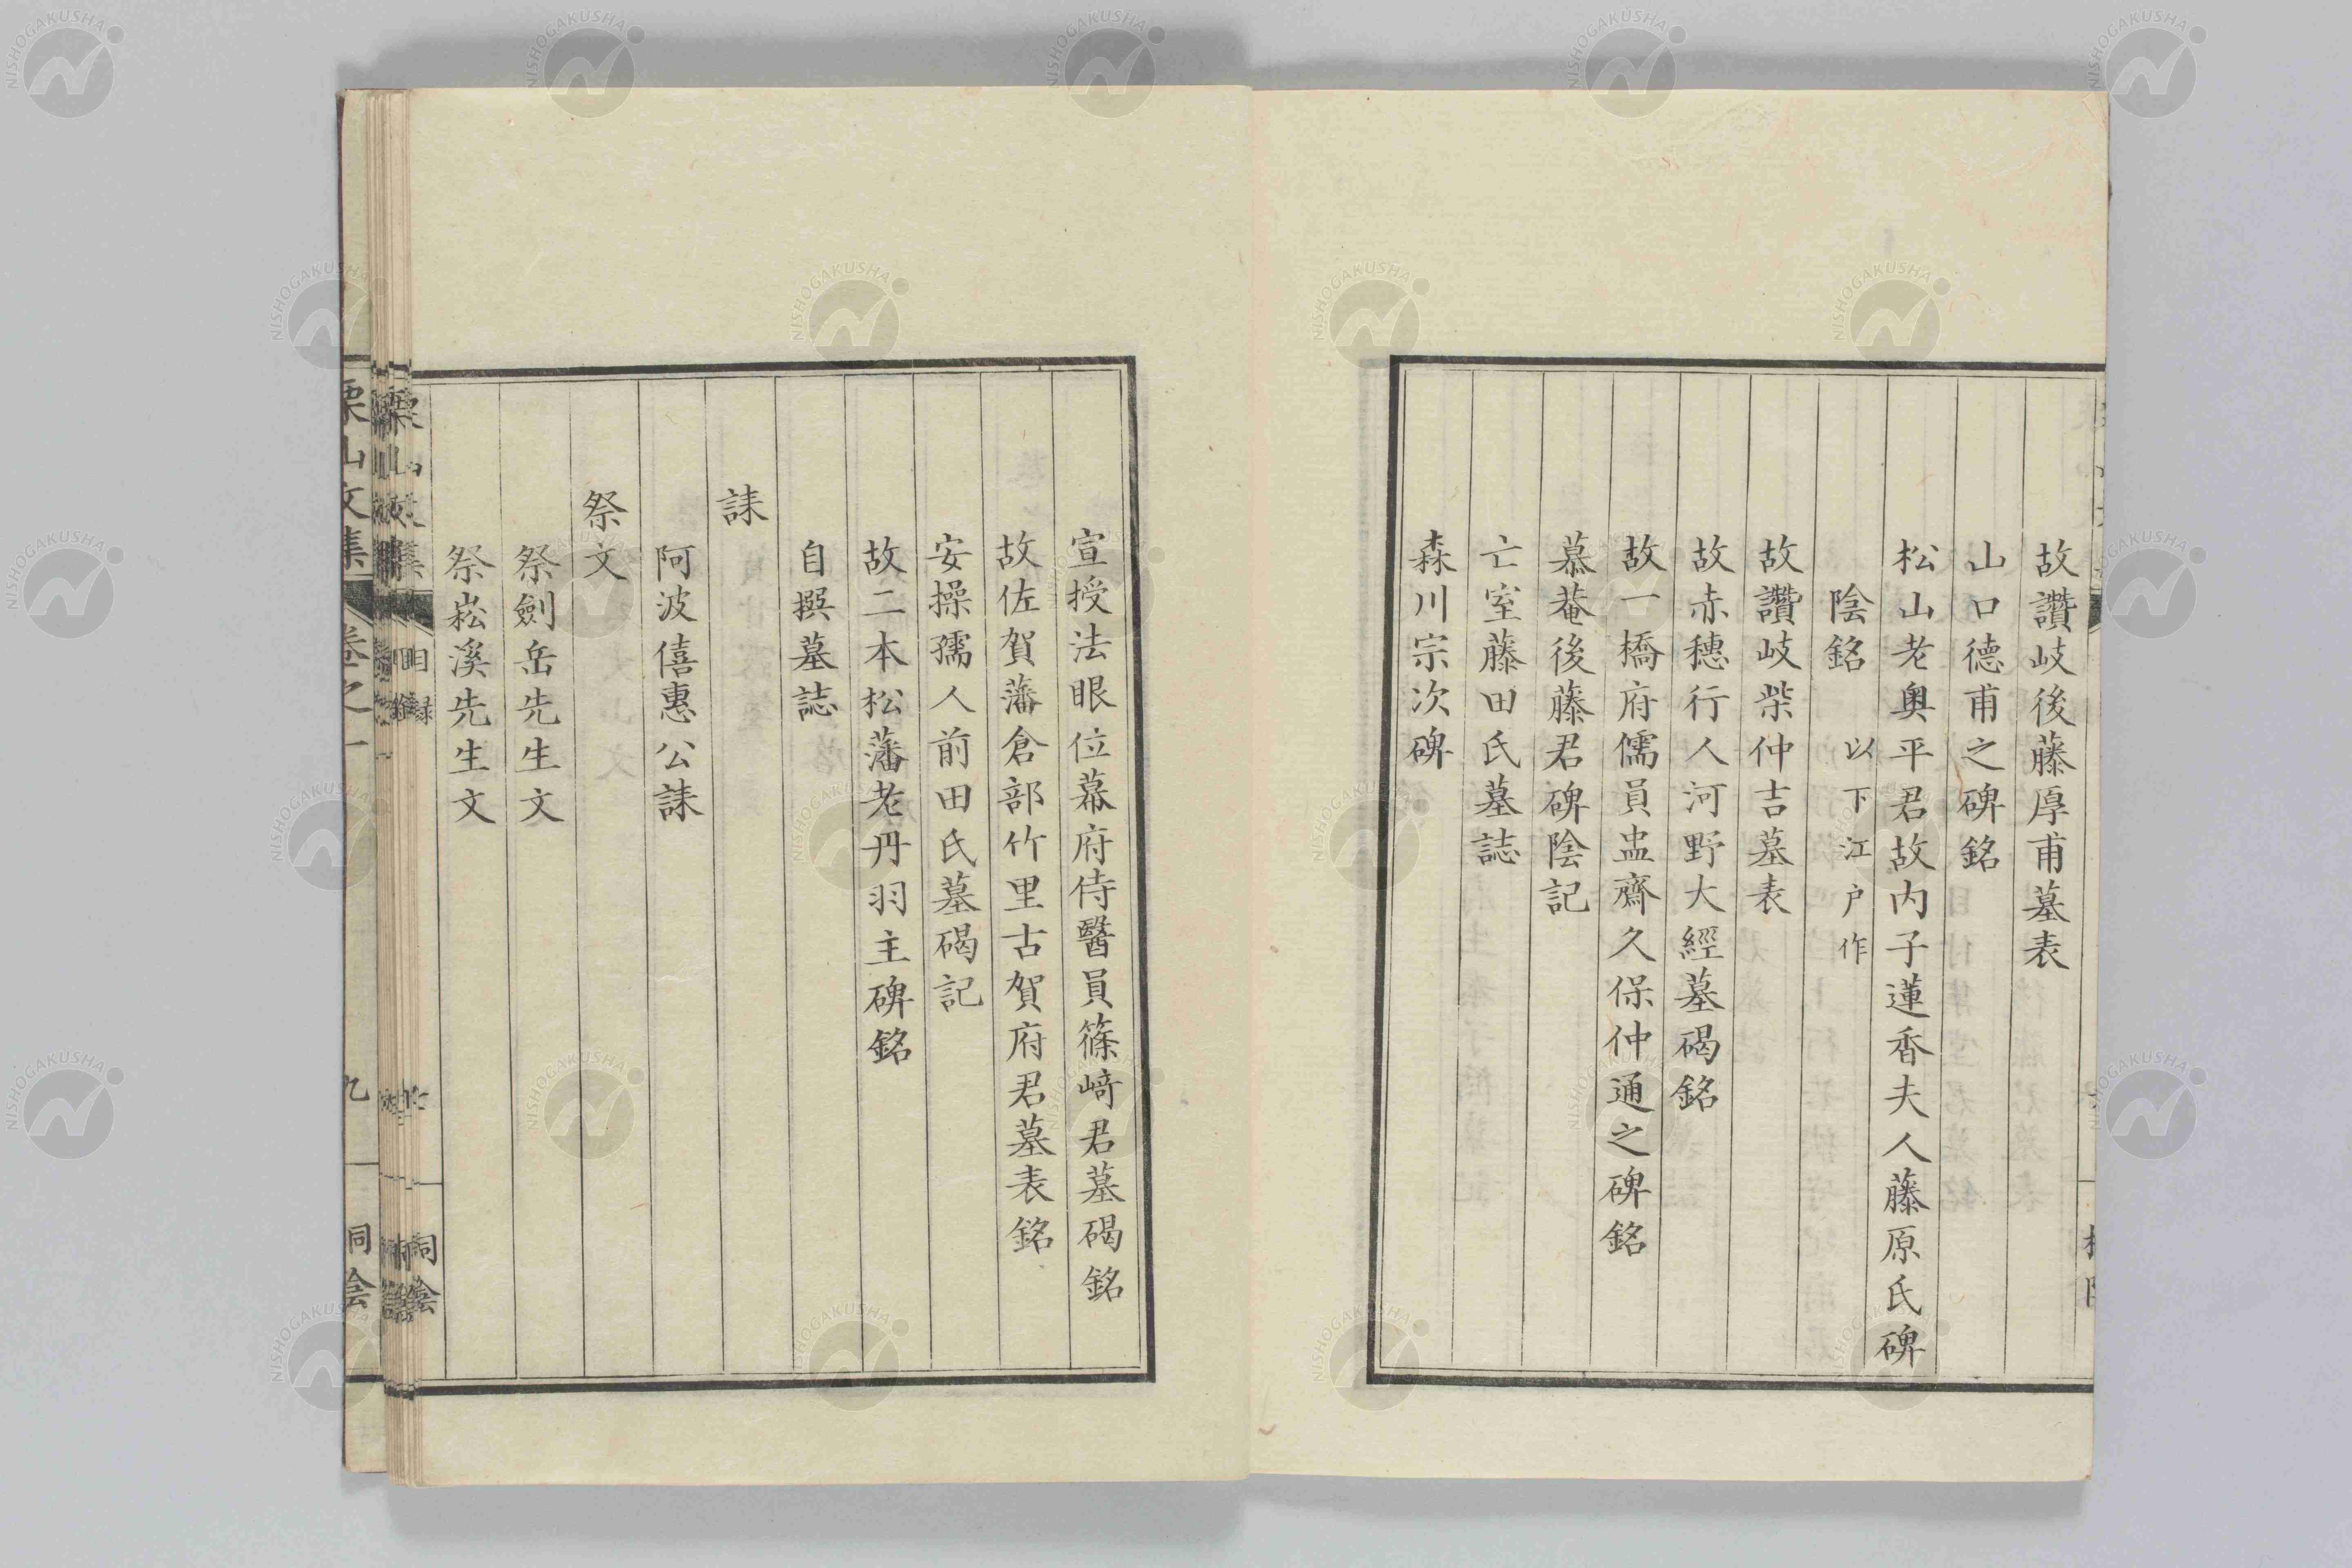 故讚岐後藤厚甫墓表
山口德甫之碑銘
松山老奥平君故内子蓮香夫人藤原氏碑
陰銘 以下江户作
故讚岐柴仲吉墓表
故赤穗行人河野大經墓碣銘
故一橋府儒員盅齋久保仲通之碑銘
慕菴後藤君碑陰記
亡室藤田氏墓誌
森川宗次碑
宣授法眼位幕府侍醫員篠﨑君墓碣銘
故佐賀藩倉部竹里古賀府君墓表銘
安操孺人前田氏墓碣記
故二本松藩老丹羽主碑銘
自撰墓誌
誄
阿波僖惠公誄
祭文
祭劍岳先生文
祭崧溪先生文
栗山文集 目録 桐陰
栗山文集 卷之一 九 桐陰
NISHOGAKUSHA